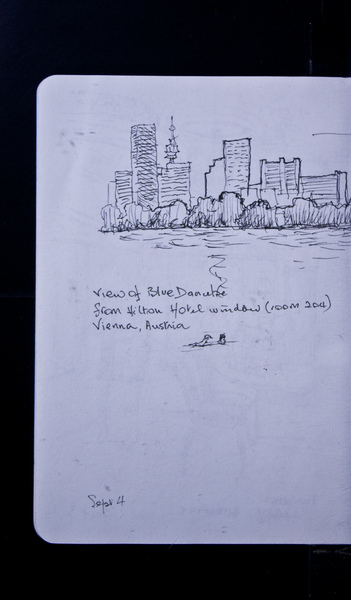 View of Blue Danube
from Hilton Hotel window (room 204)
Vienna, Austria
Sept 4